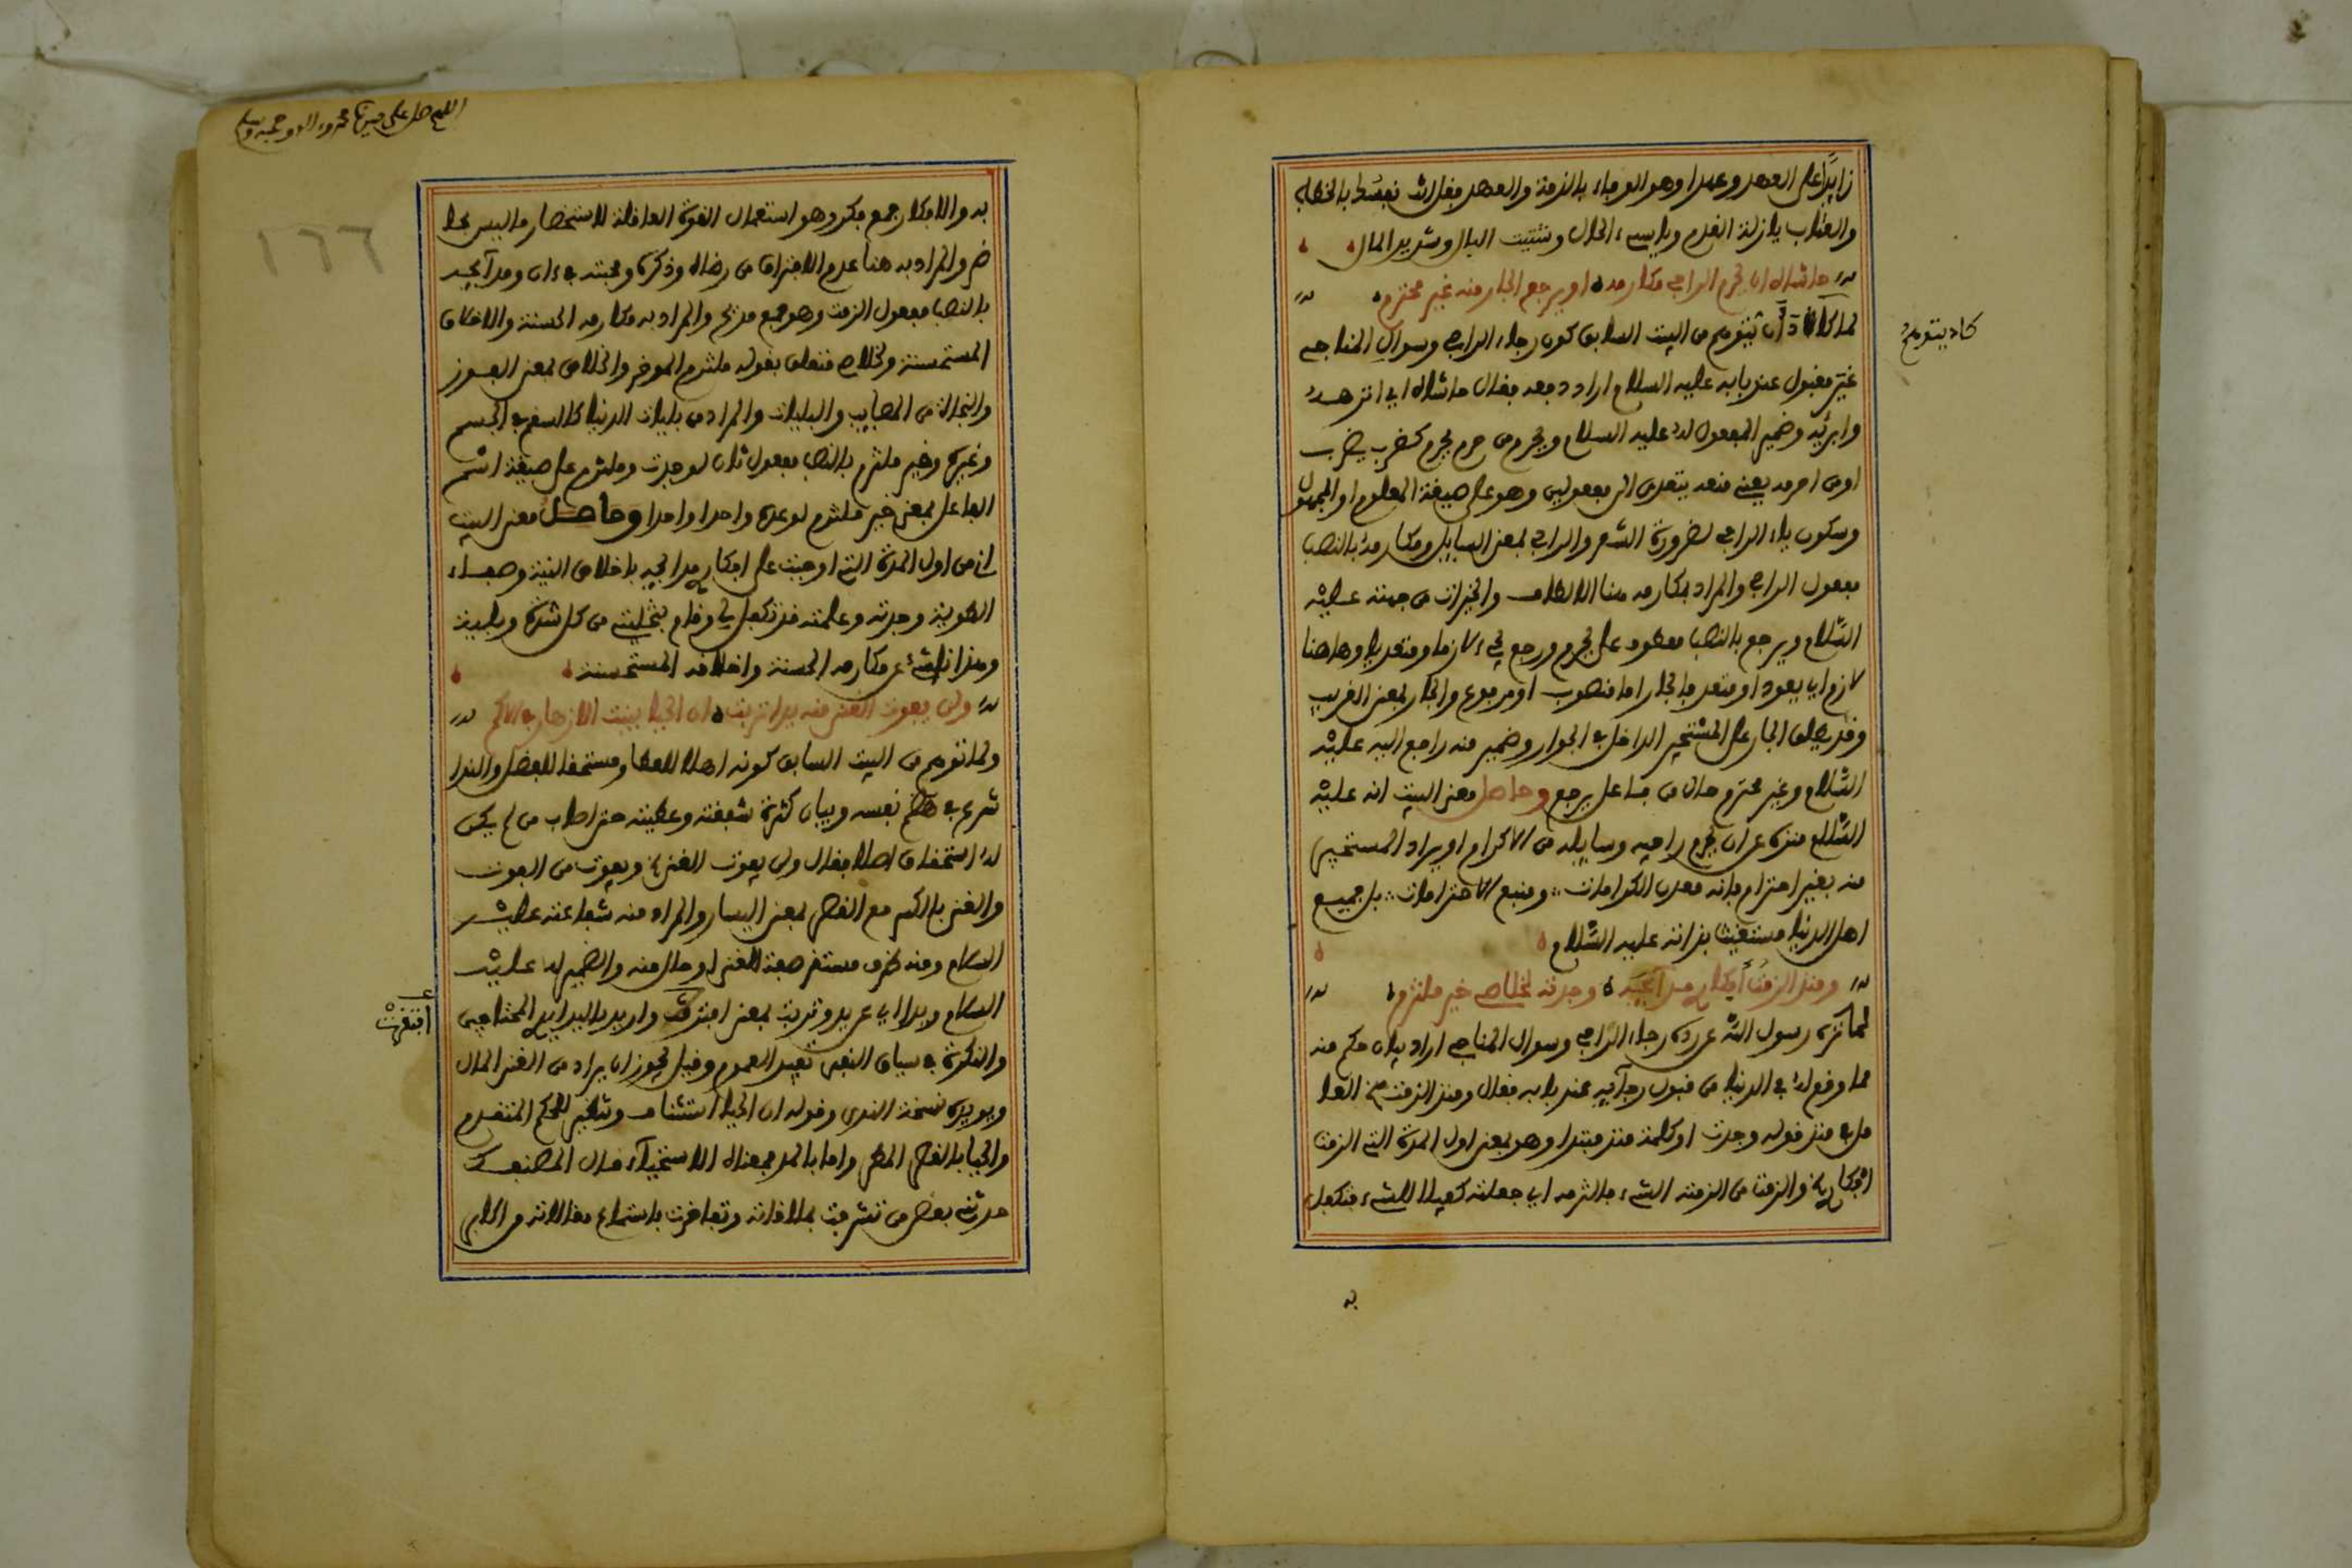 زايدا على العهد وعهدا وهو الوفاء بالذمة والعهد فقل انت نفسك بالخطاب
والعتاب يا زلة القدم وياسيء الحال وشتيت البال وشديد المال
حاشاه ان يحرم الراجي مكارمه او يرجع الجار منه غير محترم
لما كان ان يتوهم من البيت السابق كون رجاء الراجي وسوال المناجي
كاد يتوهم
غير مقبول عند بابه عليه السلام اراد دفعه فقال حاشاه اي انزهه
وابرئه وضمير المفعول له عليه السلام ويحرم من حرم يحرم كضرب يضرب
او من احرمه يعني منعه يتعدى الى مفعولين وهو على صيغة المعلوم او المجهول
وسكون ياء الراجي لضرورة الشعر والراجي بمعنى السايل ومكارمه بالنصب
مفعول الراجي والمراد بمكارمه هنا الالطاف والخيرات من جهته عليه
السلام ويرجع بالنصب معطوف على يحرم ورجع يجيء لازما ومتعديا وهاهنا
لازم اي يعود او متعد فالجار اما منصوب او مرفوع والجار بمعنى القريب
وقد يطلق الجار على المستجير الداخل في الجوار وضمير منه راجع اليه عليه
السلام وغير محترم حال من فاعل يرجع وحاصل معنى البيت انه عليه
السلام منزه عن ان يحرم راجيه وسايله من الاكرام او يراد المستجير
منه بغير احترام فانه معدن الكرامات ومنبع الاحترامات بل جميع
اهل الدنيا مستغيث بذاته عليه السلام
ومنذ الزمت افكاري مدايحه وجدته لخلاصي خير ملتزم
لما نزه رسول الله عن رده رجاء الراجي وسوال المناجي اراد بيان حكم منه
مما وقع له في الدنيا من قبول رجايه عند بابه فقال ومنذ الزمت الخ العا
مل في منذ قوله وجدت او كلمة منذ مبتدا وهو بمعنى اول المدة التي الزمت
افكاري والزمت من الزمته الشيء فالتزمه اي جعلته كفيلا للشيء فتكفل
به
اللهم صل على سيدنا محمد واله وصحبه وسلم
١٦٦
به والافكار جمع فكر وهو استعمال القوة العاقلة لاستحضار ما ليس بحا
ضر والمراد به هنا عدم الافتراق من رضاه وذكره ومحبته في ان ومدايحه
بالنصب مفعول الزمت وهو جمع مديح والمراد به مكارمه الحسنة والاخلاق
المستحسنة ولخلاصي متعلق بقوله ملتزم الموخر والخلاص بمعنى الفوز
والنجاة من المصايب والبليات والمراد من بليات الدنيا كالسقم في الجسم
وغيره وخير ملتزم بالنصب مفعول ثان لوجدت وملتزم على صيغة اسم
الفاعل بمعنى خير ملتزم لوعده واحدا واحدا وحاصل معنى البيت
ان من اول المدة التي اوجبت على افكاري مدايحه باخلاص النية وصفاء
الطوية وجدته وعلمته قد تكفل لي وقام بتخليصي من كل شدة وبلية
وهذا ناشئ عن مكارمه الحسنة واخلاقه المستحسنة
ولن يفوت الغنى منه يدا تربت ان الحيا ينبت الازهار في الاكم
ولما توهم من البيت السابق كونه اهلا للعطا ومستحقا للفضل والندا
شرع في هضم نفسه وبيان كثرة شفقته وعطيته حتى اصاب من لم يكن
له استحقاق اصلا فقال ولن يفوت الغنى الخ ويفوت من الفوت
والغنى بالكسر مع القصر بمعنى اليسار والمراد منه شفاعته عليه
السلام ومنه ظرف مستقر صفة الغنى او حال منه والضمير له عليه
السلام ويدا اي عن يد وتربت بمعنى افترقت واريد باليد ايدي المحتاجين
افتقرت
والنكرة في سياق النفي تفيد العموم وقيل يجوز ان يراد من الغنى المال
ويويده نسخة الندى وقوله ان الحيا استئناف وتنظير للحكم المتقدم
والحيا بالقصر المطر واما بالمد فمعناه الاستحياء قال المصنف
حدثني بعض من تشرفت بملاقاته وتفاخرت باستماع مقالاته من اكابر